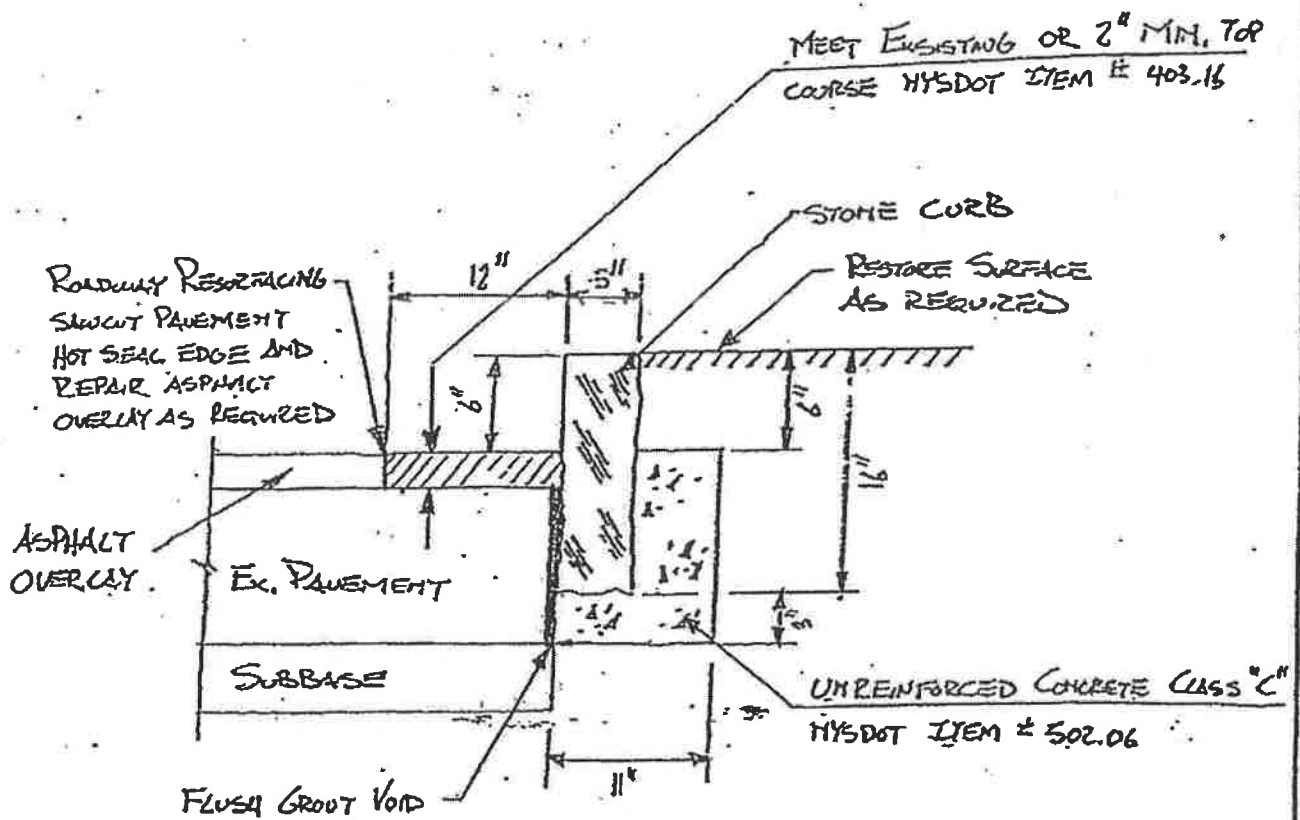 MEET EXSISTAUG OR 2" MIN. TOP
COURSE NYSDOT ITEM # 403.16
STONE CURB
RESTORE SURFACE
AS REQUIRED
12"
5"
ROADWAY RESURFACING
SAWCUT PAVEMENT
HOT SEAL EDGE AND
REPAIR ASPHALT
OVERLAY AS REQUIRED
6"
6"
16"
ASPHALT
OVERLAY
EX. PAVEMENT
3"
SUBBASE
UNREINFORCED CONCRETE CLASS "C"
NYSDOT ITEM # 502.06
11"
FLUSH GROUT VOID